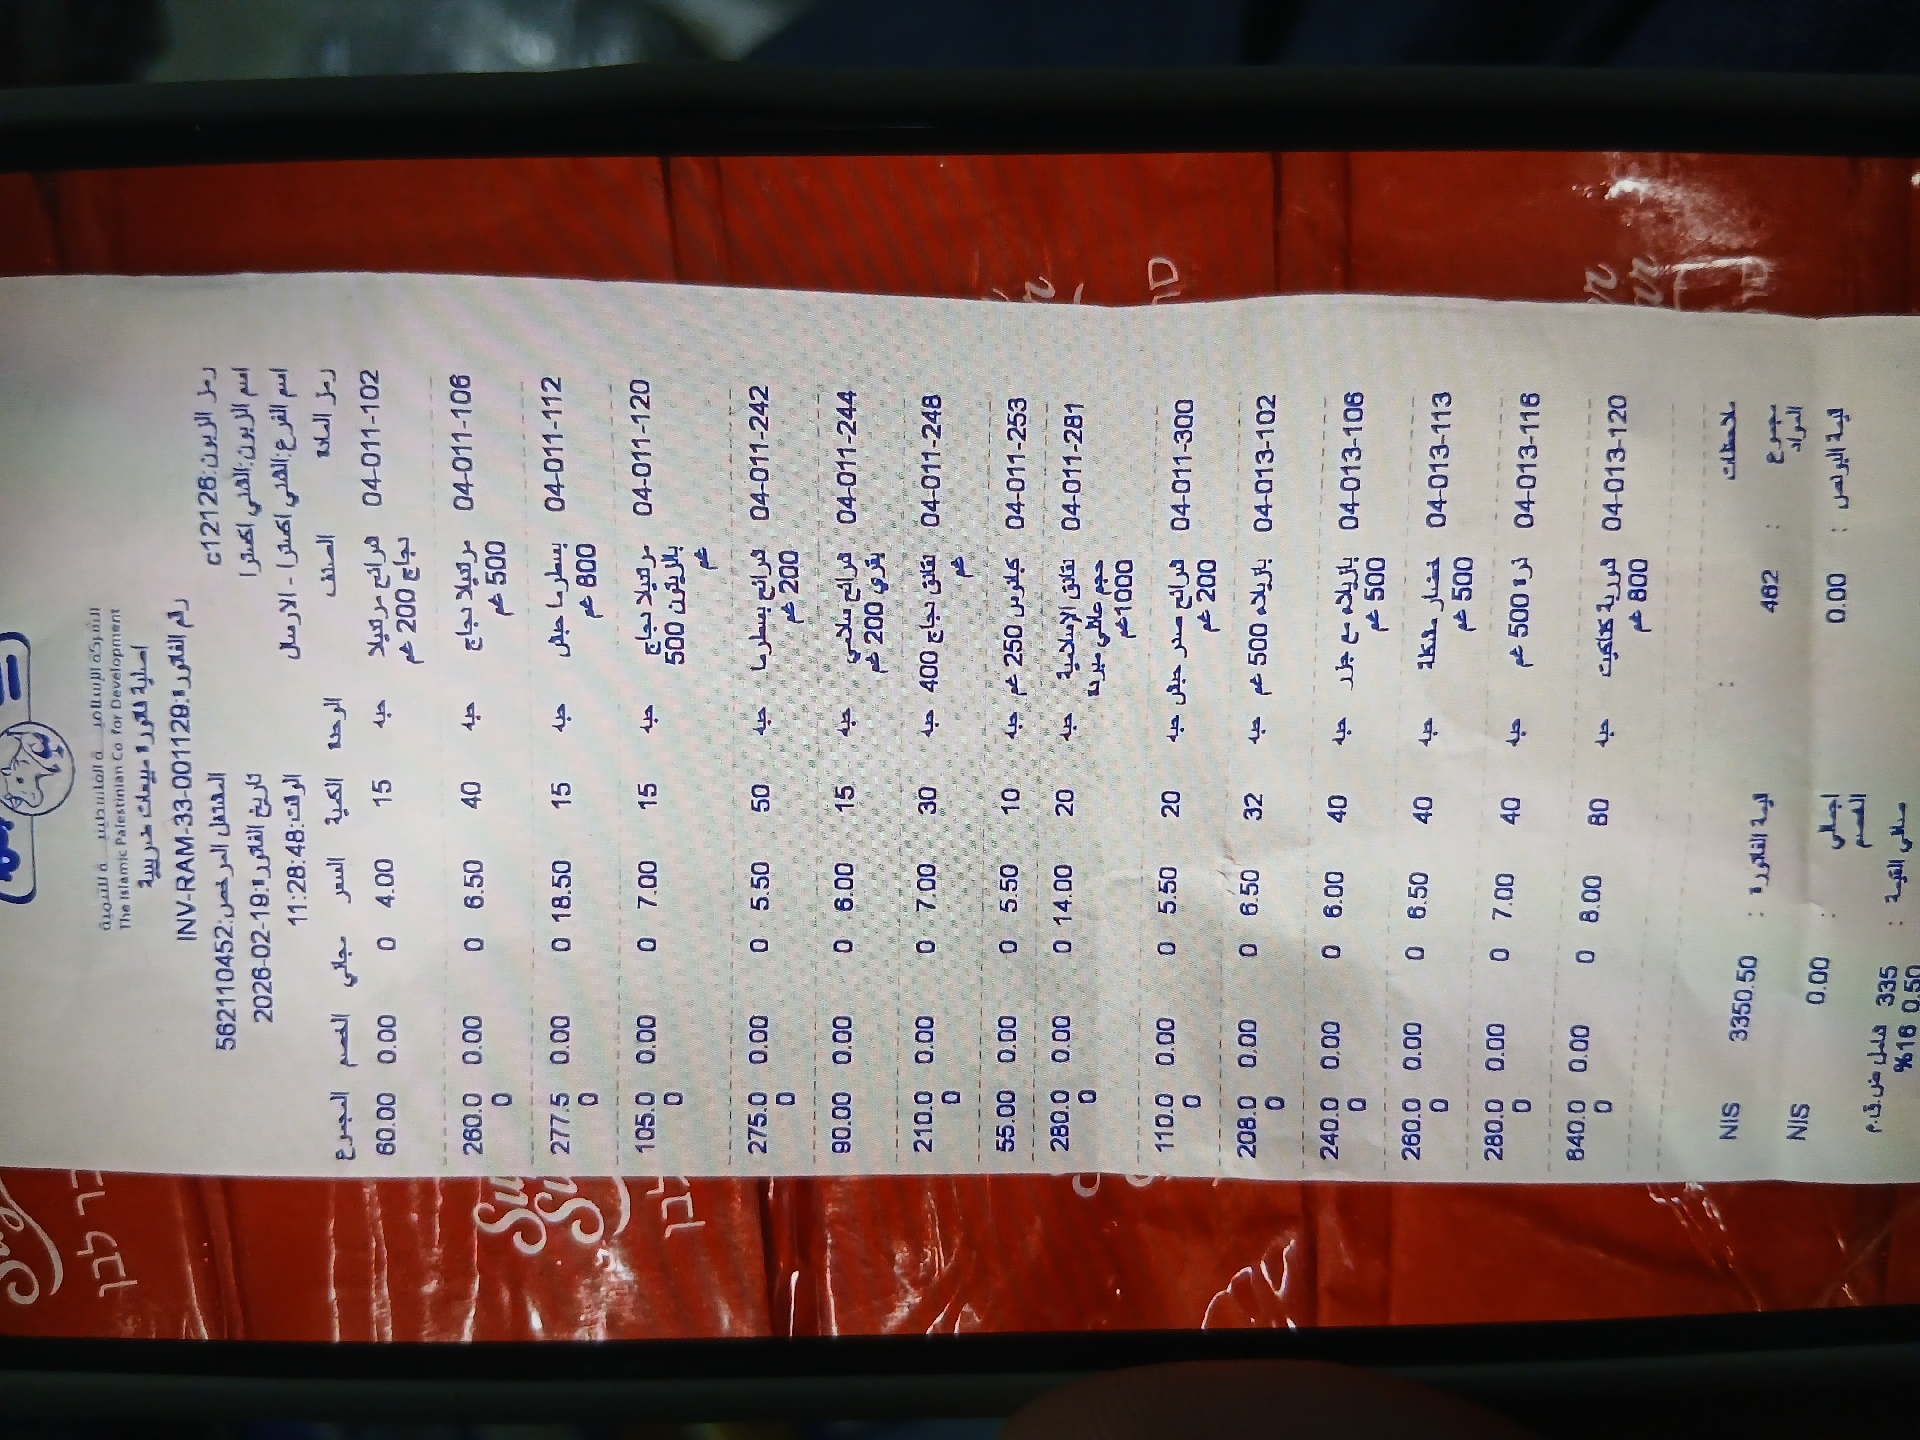 The Islamic Palestinian Co for Development
اصلية فاتورة مبيعات ضريبية
رقم الفاتورة:INV-RAM-33-001129
رمز الزبون:c12126 المشتغل المرخص:562110452
اسم الزبون:الهني اكسترا تاريخ الفاتورة:2026-02-19
اسم الفرع:الهني اكسترا - الارسال الوقت:11:28:48
رمز المادة الصنف الوحدة الكمية السعر مجاني الخصم المجموع
04-011-102 شرائح مرتديلا حبه 15 4.00 0 0.00 60.00
دجاج 200 غم
04-011-106 مرتديلا دجاج حبه 40 6.50 0 0.00 260.0
500 غم 0
04-011-112 بسطرما حبش حبه 15 18.50 0 0.00 277.5
800 غم 0
04-011-120 مرتديلا دجاج حبه 15 7.00 0 0.00 105.0
بالزيتون 500 0
غم
04-011-242 شرائح بسطرما حبه 50 5.50 0 0.00 275.0
200 غم 0
04-011-244 شرائح سلامي حبه 15 6.00 0 0.00 90.00
بقري 200 غم
04-011-248 نقانق دجاج 400 حبه 30 7.00 0 0.00 210.0
غم 0
04-011-253 كبانوس 250 غم حبه 10 5.50 0 0.00 55.00
04-011-281 نقانق الإسلامية حبه 20 14.00 0 0.00 280.0
حجم عائلي مبردة 0
1000غم
04-011-300 شرائح صدر حبش حبه 20 5.50 0 0.00 110.0
200 غم 0
04-013-102 بازيلاء 500 غم حبه 32 6.50 0 0.00 208.0
0
04-013-106 بازيلاء مع جزر حبه 40 6.00 0 0.00 240.0
500 غم 0
04-013-113 خضار مشكلة حبه 40 6.50 0 0.00 260.0
500 غم 0
04-013-116 ذرة 500 غم حبه 40 7.00 0 0.00 280.0
0
04-013-120 حبه 80 8.00 0 0.00 640.0
800 غم 0
ملاحظات :
مجموع : 462 قيمة الفاتورة : 3350.50 NIS
المواد
قيمة البونص : 0.00 اجمالي : 0.00 NIS
الخصم
صافي القيمة : 335 شامل ض.ق.م
0.50 %16